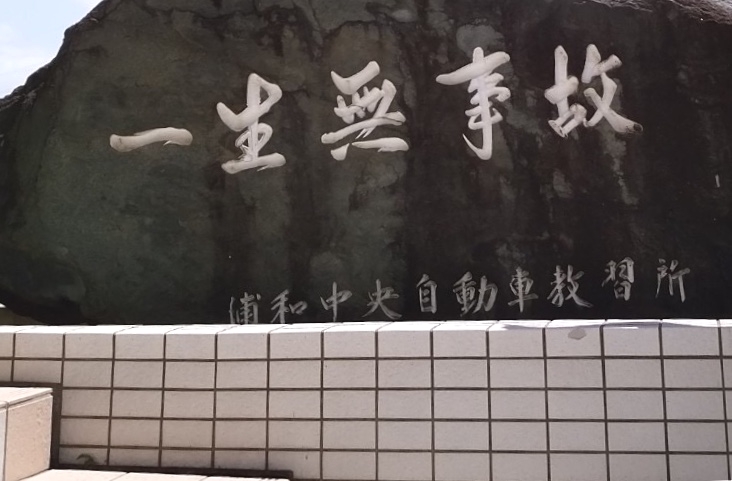 一生無事故
浦和中央自動車教習所